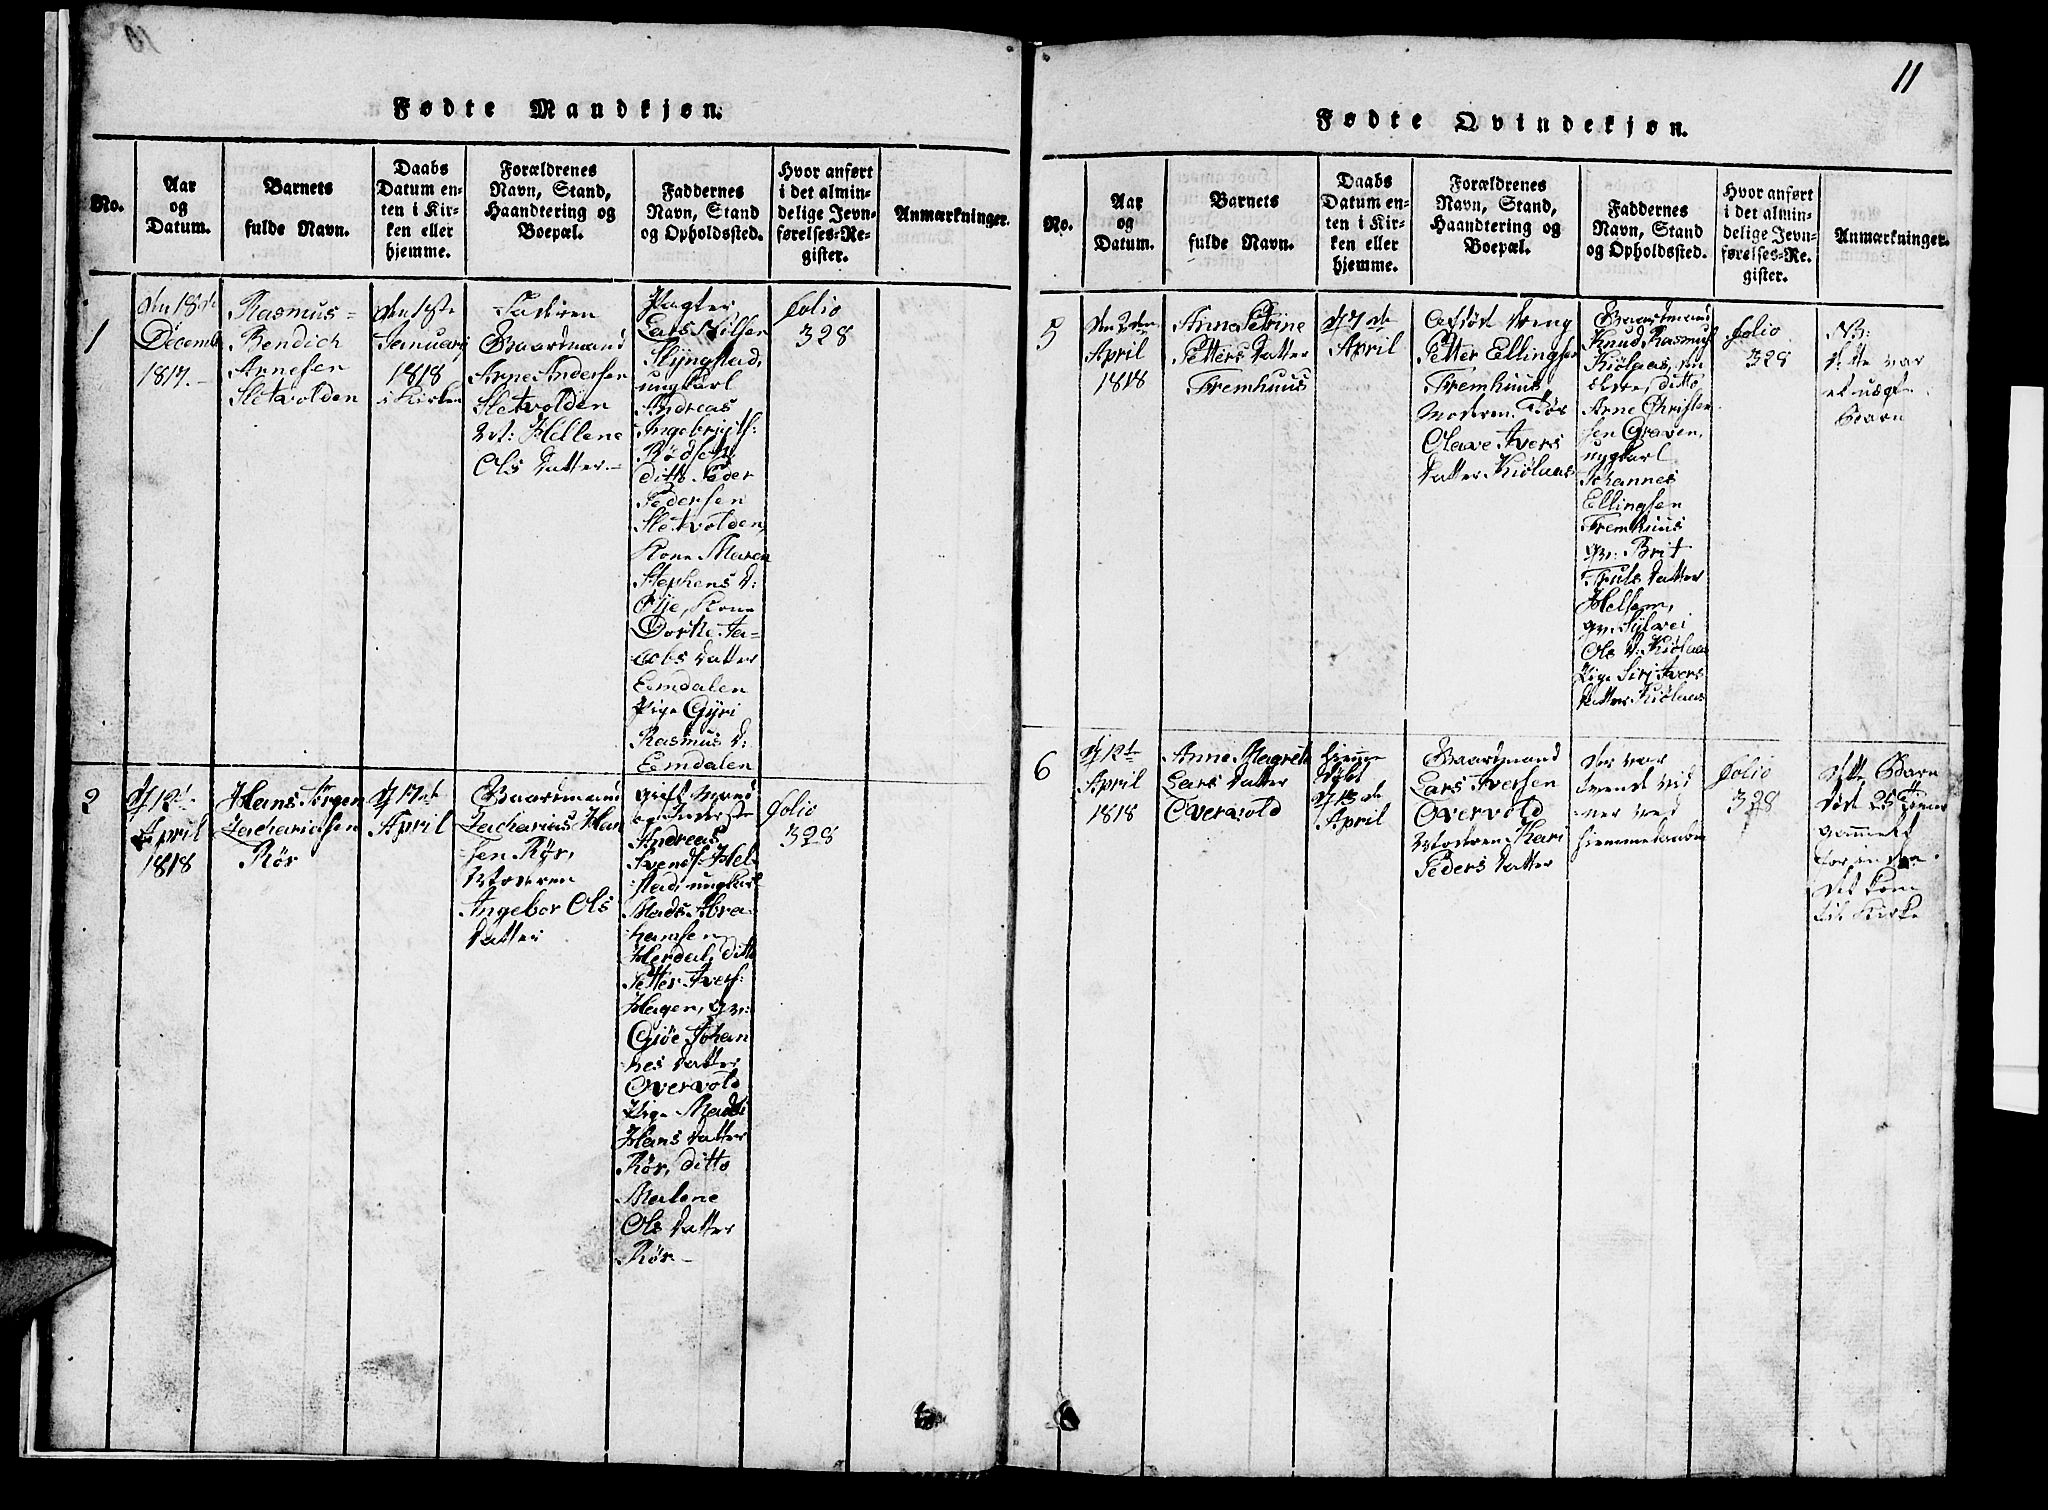 Fødte Mandkjøn.
No.
Aar
og
Datum.
Barnets
fulde Navn.
Daabs
Datum en-
ten i Kir-
ken eller
hjemme.
Forældrenes
Navn, Stand,
Haandtering og
Boepæl.
Faddernes
Navn, Stand
og Opholdssted.
Hvor anført
i det almin-
delige Jevn-
førelses-Re-
gister.
Anmærkninger.
1
den 18de
Decemb
1817.-
Rasmus-
Bendich
Arnesen
Sletvolden
den 1ste
Januarj
1818
i Kirken
Faderen
Gaardmand
Arne Andersen
Sletvolden
M: Hellene
Ols Datter.-
Pagter
Lars Nilsen
Slÿngstad,
ungkarl
Andreas
Ingebrigts:
Rødset,
ditto Peder
Pedersen
Sletvolden,
Kone Maren
Stephens D:
Øÿe, Kone
Dorthe Ja-
cobs Datter
Eemdalen
Pige Gÿri
Rasmus D:
Eemdalen
Folio
328
2
d 12t
April
1818
Hans Jørgen
Zachariasen
Rør
d 17de
April
Gaardmand
Zacharias Han
sen Rør,
Moderen
Ingebor Ols
Datter
gift Mand
og Inderste
Andreas
Svends: Hel-
stad, ungkarl
Mads Abra-
hamsen
Herdal, ditto
Petter Ivers:
Hagen, gv:
Gjøe Johan
nes Datter
Overvold
Pige Madsi
Hans Datter
Rør, ditto
Malene
Ols Datter
Rør-
Folio
328
11
Fødte Qvindekjøn.
No.
Aar
og
Datum.
Barnets
fulde Navn.
Daabs
Datum en-
ten i Kir-
ken eller
hjemme.
Forældrenes
Navn, Stand,
Haandtering og
Boepæl.
Faddernes
Navn, Stand
og Opholdssted.
Hvor anført
i det almin-
delige Jevn-
førelses-Re-
gister.
Anmærkninger.
5
den 2den
April
1818
Anne Petrine
Petters Datter
Fremhuus
d 7de
April
Afdød Dreng
Petter Ellingsen
Fremhuus
Moderen
Olave Ivers
Datter Kiølaas
Gaardmand
Knud Rasmus
Kiølaas,
ditto
Arne Christen
sen Graven,
ungkarl
Johannes
Ellingsen
Fremhuus
gv: Brit
Truls Datter
Helsem,
gv: Sylvei
Ols D: Kiølaas
Pige Sirj Ivers
Datter Kiølaas
Folio
328
NB:
dette var
et uægte
Barn
6
d 12t
April
1818
Anne Magrete
Lars Datter
Overvold
Hiemme
døbt
d 13de
April
Gaardmand
Lars Iversen
Overvold
Moderen Kari
Peders Datter
der var
tvende vid
ner ved
hiemmedaaben
Folio
328
dette Barn
døde 25 Timer
gammelt
før
det kom
til Kirke